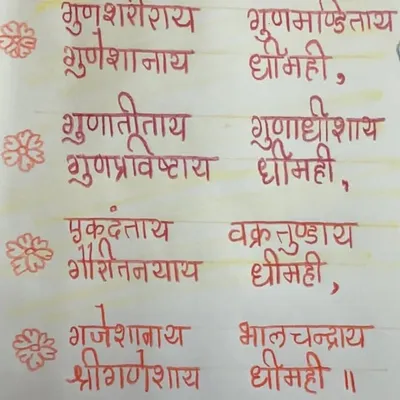 गुणशरीराय गुणमण्डिताय
गुणेशानाय धीमही,
गुणातीताय गुणाधीशाय
गुणप्रविष्टाय धीमही,
एकदंताय वक्रतुण्डाय
गौरीतनयाय धीमही,
गजेशानाय भालचन्द्राय
श्रीगणेशाय धीमही ॥